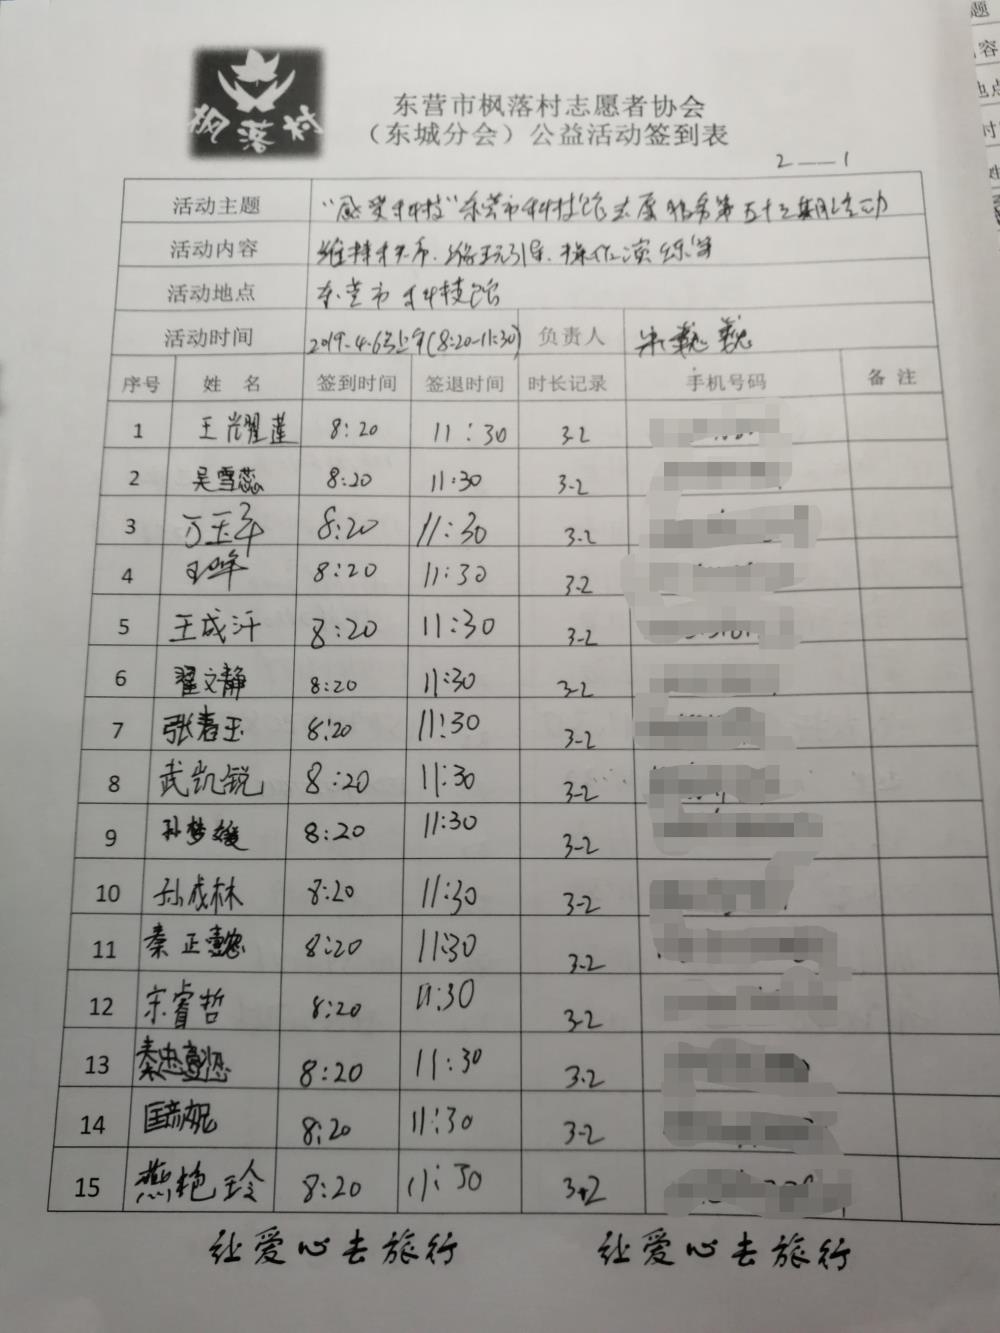 枫落村
东营市枫落村志愿者协会
（东城分会）公益活动签到表
2——1
活动主题 "感受科技"东营市科技馆志愿服务第五十三期活动
活动内容 维持秩序、游玩引导、操作演练等
活动地点 东营市科技馆
活动时间 2019.4.6号上午(8:20-11:30) 负责人 宋巍巍
序号 姓 名 签到时间 签退时间 时长记录 手机号码 备 注
1 王耀莲 8:20 11:30 3.2
2 吴雪蕊 8:20 11:30 3.2
3 万玉军 8:20 11:30 3.2
4 8:20 11:30 3.2
5 王成汗 8:20 11:30 3.2
6 翟文静 8:20 11:30 3.2
7 张春玉 8:20 11:30 3.2
8 武凯锐 8:20 11:30 3.2
9 孙梦媛 8:20 11:30 3.2
10 孙成林 8:20 11:30 3.2
11 秦正懿 8:20 11:30 3.2
12 宋睿哲 8:20 11:30 3.2
13 8:20 11:30 3.2
14 8:20 11:30 3.2
15 燕艳玲 8:20 11:30 3.2
让爱心去旅行 让爱心去旅行